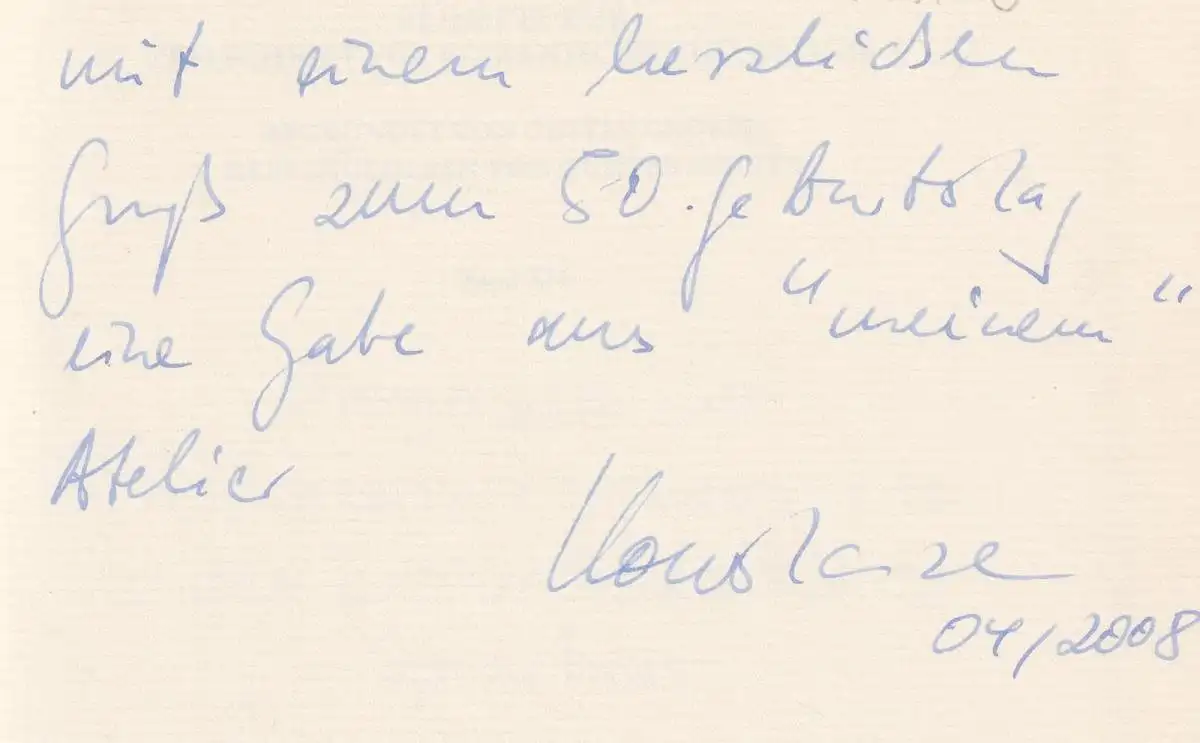 mit einem herzlichen
Gruß zum 50. Geburtstag
eine Gabe aus "meinem"
Atelier
Konstanze
04/2008